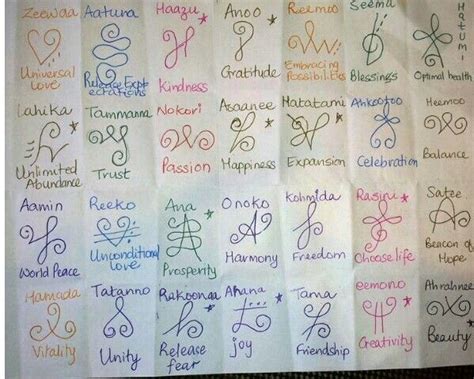 Zeewaa Aatuna Haazu Anoo Reemoo Seema Hatumi
Universal Love Release Expectations Kindness Gratitude Embracing Possibilities Blessings Optimal health
Lahika Tammanna Nokori Asoanee Matatami Ahkootoo Heemoo
Unlimited Abundance Trust Passion Happiness Expansion Celebration Balance
Aamin Reeko Ana Onoko Kohmida Rasiru Satee
World Peace Unconditional Love Prosperity Harmony Freedom Choose life Beacon of Hope
Hamada Tatanno Rakoonaa Ahana Tama eemono Ahrahnee
Vitality Unity Release fear joy Friendship Creativity Beauty